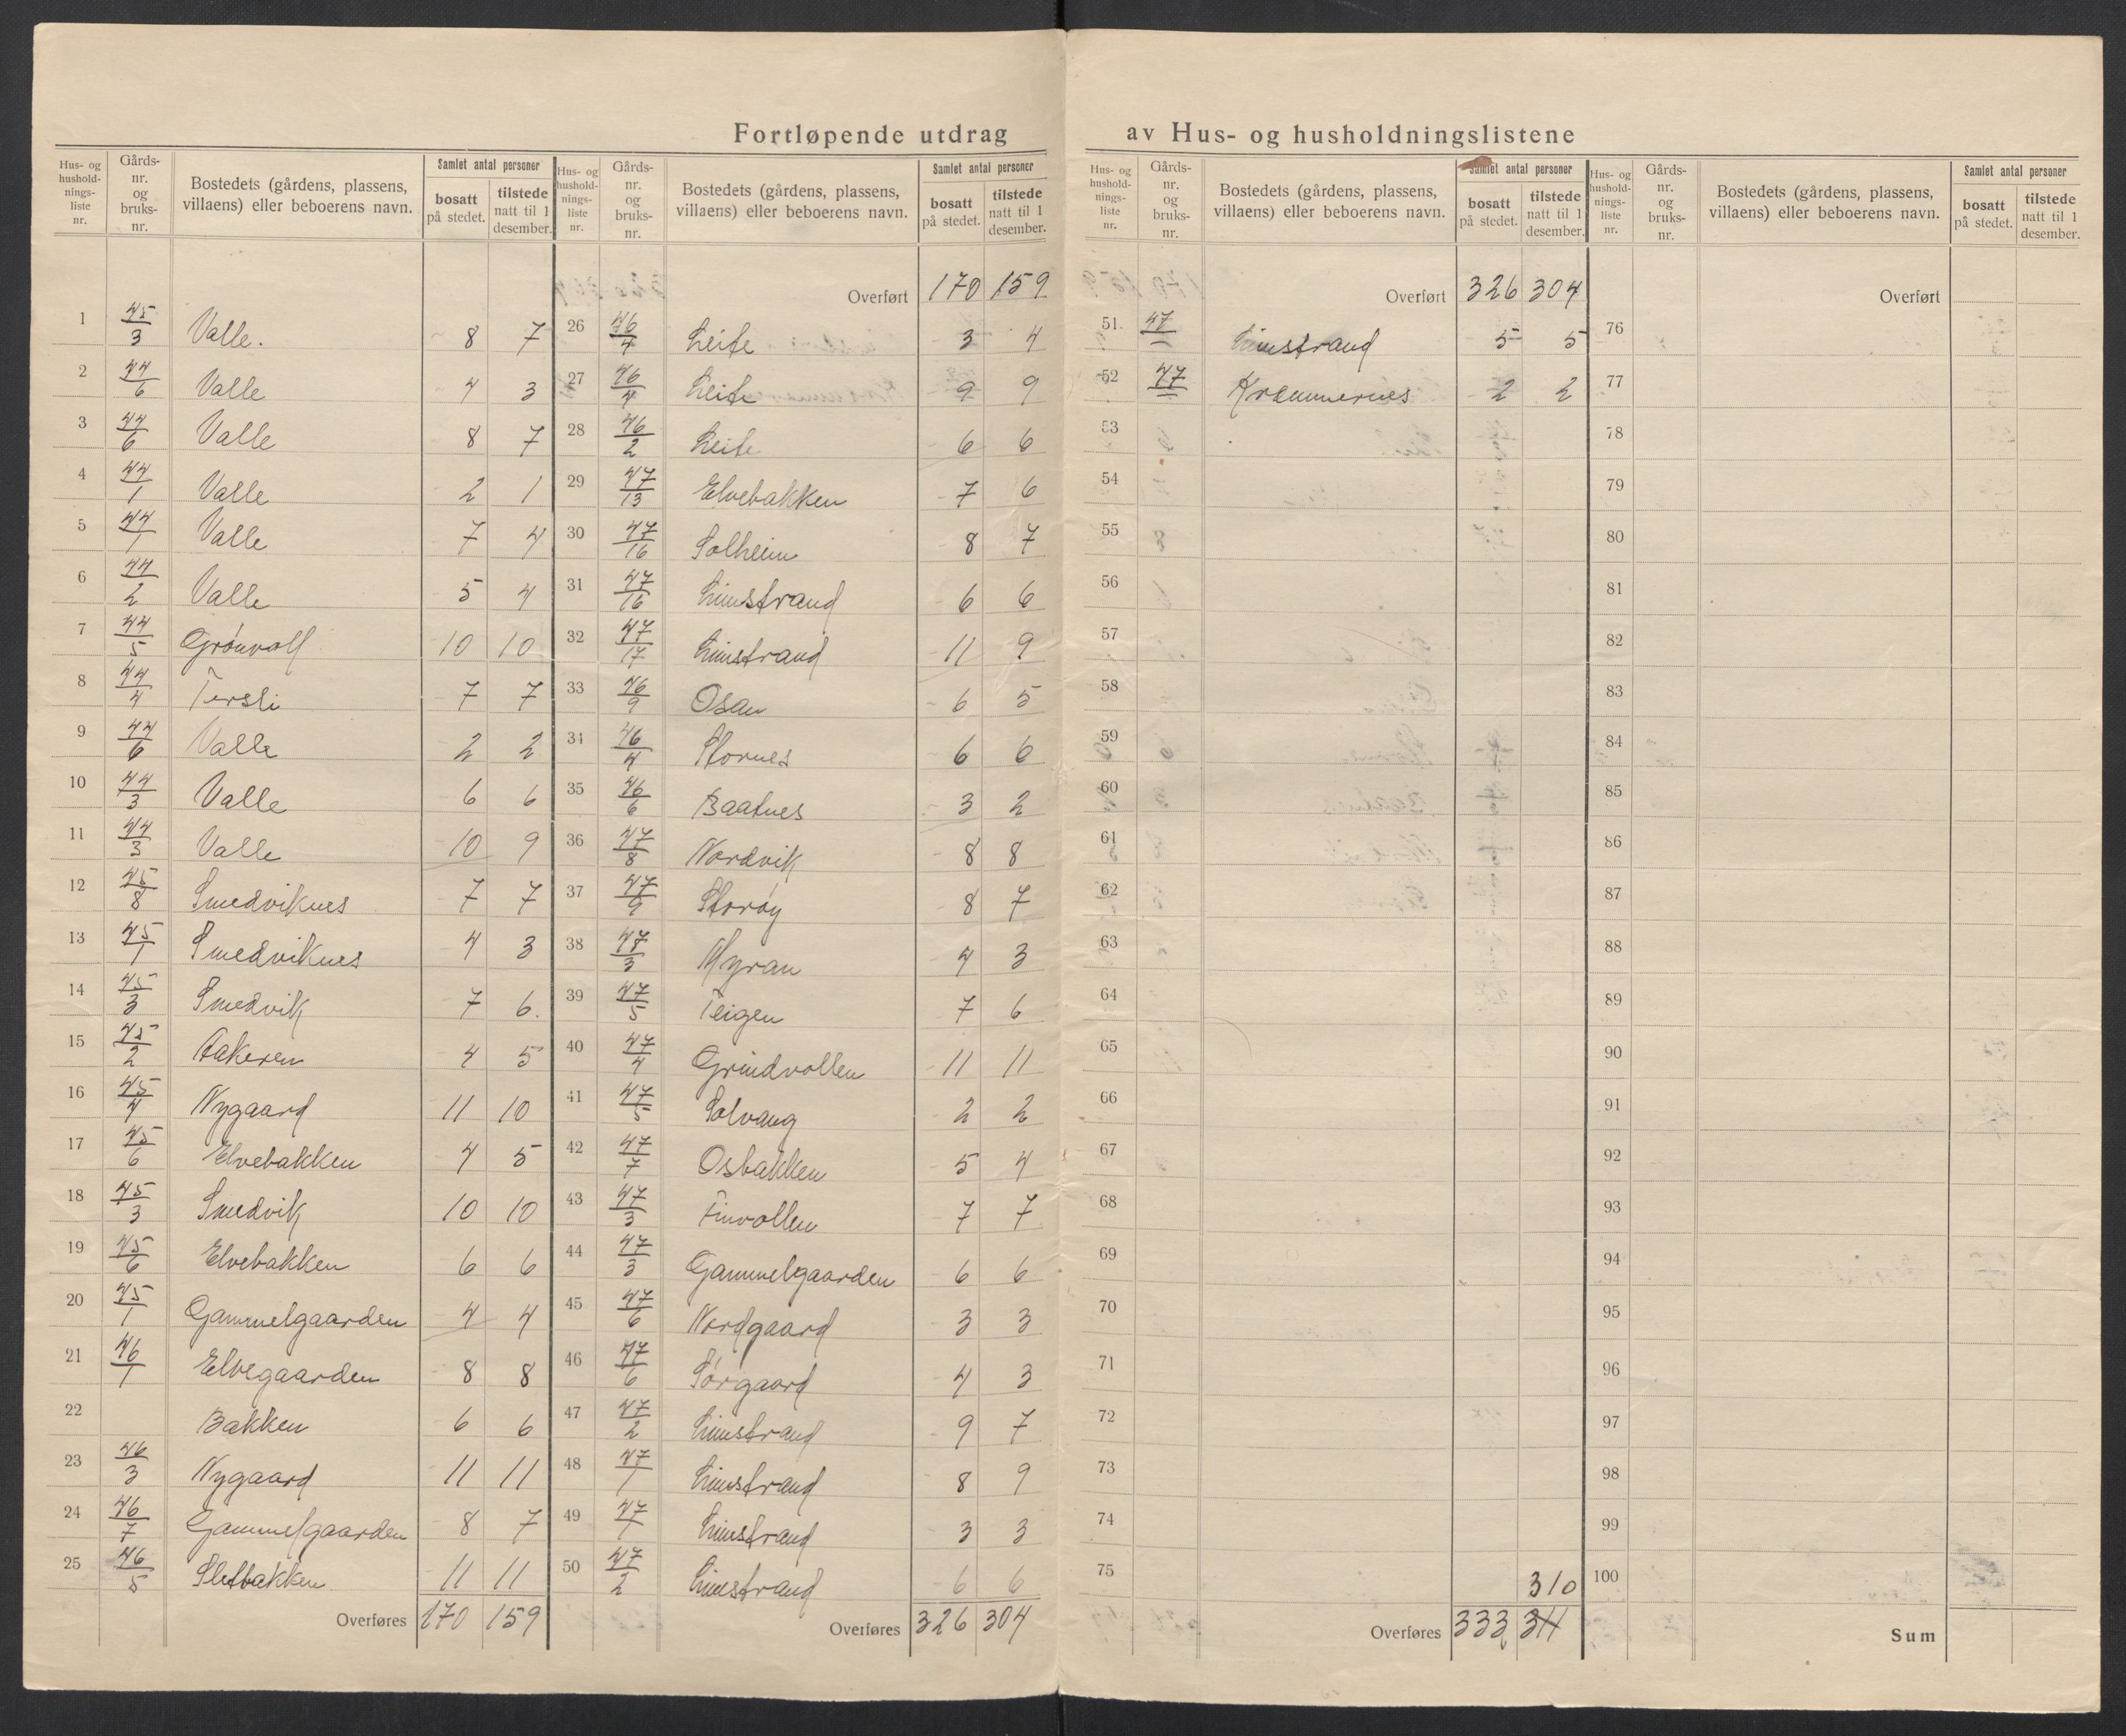 Fortløpende utdrag av Hus- og husholdningslistene
Hus- og husholdningsliste nr. | Gårds-nr. og bruks-nr. | Bostedets (gårdens, plassens, villaens) eller beboerens navn. | Samlet antal personer | bosatt på stedet. | tilstede natt til 1 desember.
1 45/3 Valle. 8 7
2 44/6 Valle 4 3
3 44/6 Valle 8 7
4 44/1 Valle 2 1
5 44/1 Valle 7 4
6 44/2 Valle 5 4
7 44/5 Grønvoll 10 10
8 44/4 Tersli 7 7
9 44/6 Valle 2 2
10 44/3 Valle 6 6
11 44/3 Valle 10 9
12 45/8 Smedviknes 7 7
13 45/1 Smedviknes 4 3
14 45/3 Smedvik 7 6.
15 45/2 Aakeren 4 5
16 45/4 Nygaard 11 10
17 45/6 Elvebakken 4 5
18 45/3 Smedvik 10 10
19 45/6 Elvebakken 6 6
20 45/1 Gammelgaarden 4 4
21 46/1 Elvegaarden 8 8
22 Bakken 6 6
23 46/3 Nygaard 11 11
24 46/7 Gammelgaarden 8 7
25 46/5 Sletbakken 11 11
Overføres 170 159
Hus- og husholdningsliste nr. | Gårds-nr. og bruks-nr. | Bostedets (gårdens, plassens, villaens) eller beboerens navn. | Samlet antal personer | bosatt på stedet. | tilstede natt til 1 desember.
Overført 170 159
26 46/4 Leite 3 4
27 46/4 Leite 9 9
28 46/2 Leite 6 6
29 47/13 Elvebakken 7 6
30 47/16 Solheim 8 7
31 47/16 Limstrand 6 6
32 47/17 Limstrand 11 9
33 46/9 Osan 6 5
34 46/4 Stornes 6 6
35 46/6 Baatnes 3 2
36 47/8 Nordvik 8 8
37 47/9 Storøy 8 7
38 47/3 Myran 4 3
39 47/5 Teigen 7 6
40 47/4 Grindvollen 11 11
41 47/5 Solvang 2 2
42 47/7 Osbakken 5 4
43 47/3 Finvollen 7 7
44 47/3 Gammelgaarden 6 6
45 47/6 Nordgaard 3 3
46 47/6 Sørgaard 4 3
47 47/2 Limstrand 9 7
48 47/1 Limstrand 8 9
49 47/1 Limstrand 3 3
50 47/2 Limstrand 6 6
Overføres 326 304
Hus- og husholdningsliste nr. | Gårds-nr. og bruks-nr. | Bostedets (gårdens, plassens, villaens) eller beboerens navn. | Samlet antal personer | bosatt på stedet. | tilstede natt til 1 desember.
Overført 326 304
51. 47/ Limstrand 5 5
52 47/ Kræmmernes 2 2
53
54
55
56
57
58
59
60
61
62
63
64
65
66
67
68
69
70
71
72
73
74
75 310
Overføres 333 311
Hus- og husholdningsliste nr. | Gårds-nr. og bruks-nr. | Bostedets (gårdens, plassens, villaens) eller beboerens navn. | Samlet antal personer | bosatt på stedet. | tilstede natt til 1 desember.
Overført
76
77
78
79
80
81
82
83
84
85
86
87
88
89
90
91
92
93
94
95
96
97
98
99
100
Sum